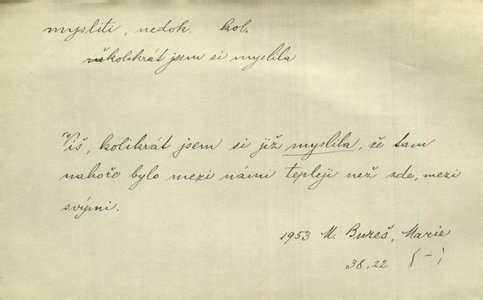 mysliti, nedok. kol.
kolikrát jsem si myslila
Víš, kolikrát jsem si již myslila, že tam
nahoře bylo mezi námi tepleji než zde, mezi
svými.
1953 M. Bureš, Marie
38,22 (—)